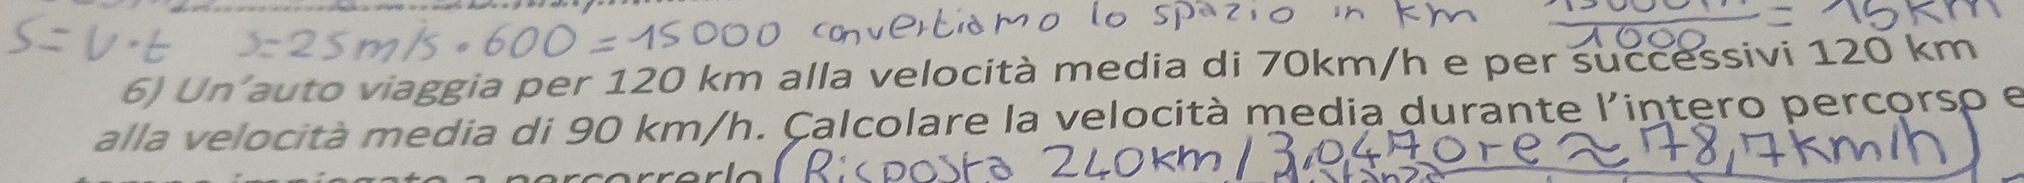 S=V·t S=25m/s·600=15000 convertiamo lo spazio in km 15000m/1000=15km
6) Un'auto viaggia per 120 km alla velocità media di 70km/h e per successivi 120 km
alla velocità media di 90 km/h. Calcolare la velocità media durante l'intero percorso e
percorrerlo (Risposta 240km/3,047ore≈78,7km/h)